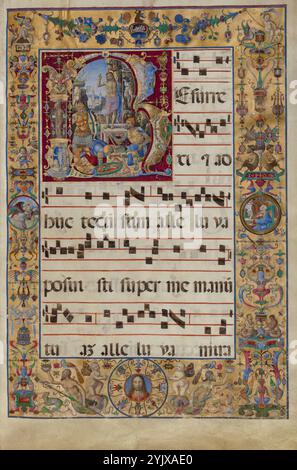 Resurre
xi ⁊ ad
huc tecū sum alle lu ya
posui sti super me manū
tu aʒ alle lu ya mira
2YJXAE0